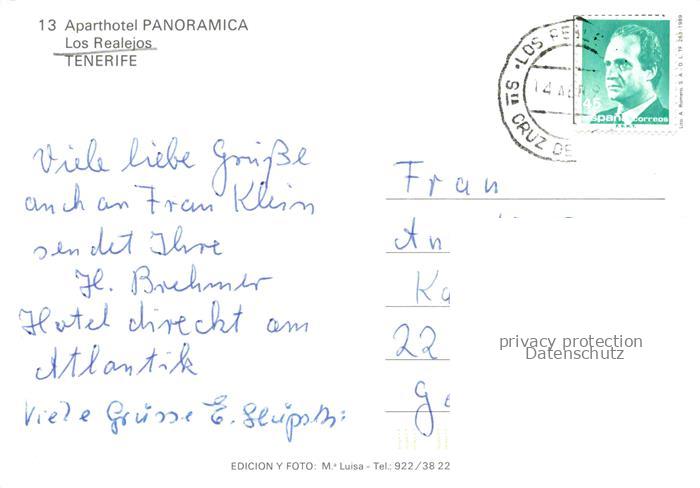 13 Aparthotel PANORAMICA
Los Realejos
TENERIFE
LOS REALE
STA CRUZ DE
14 A
45
España correos
F.N.M.T.
Viele liebe Grüße
auch an Frau Klein
sendet Ihre
H. Brehmer
Hotel direckt am
Atlantik
Viele Grüsse E.
Frau
An
Ka
22
Ge
privacy protection
Datenschutz
EDICION Y FOTO: M.ª Luisa - Tel.: 922/38 22